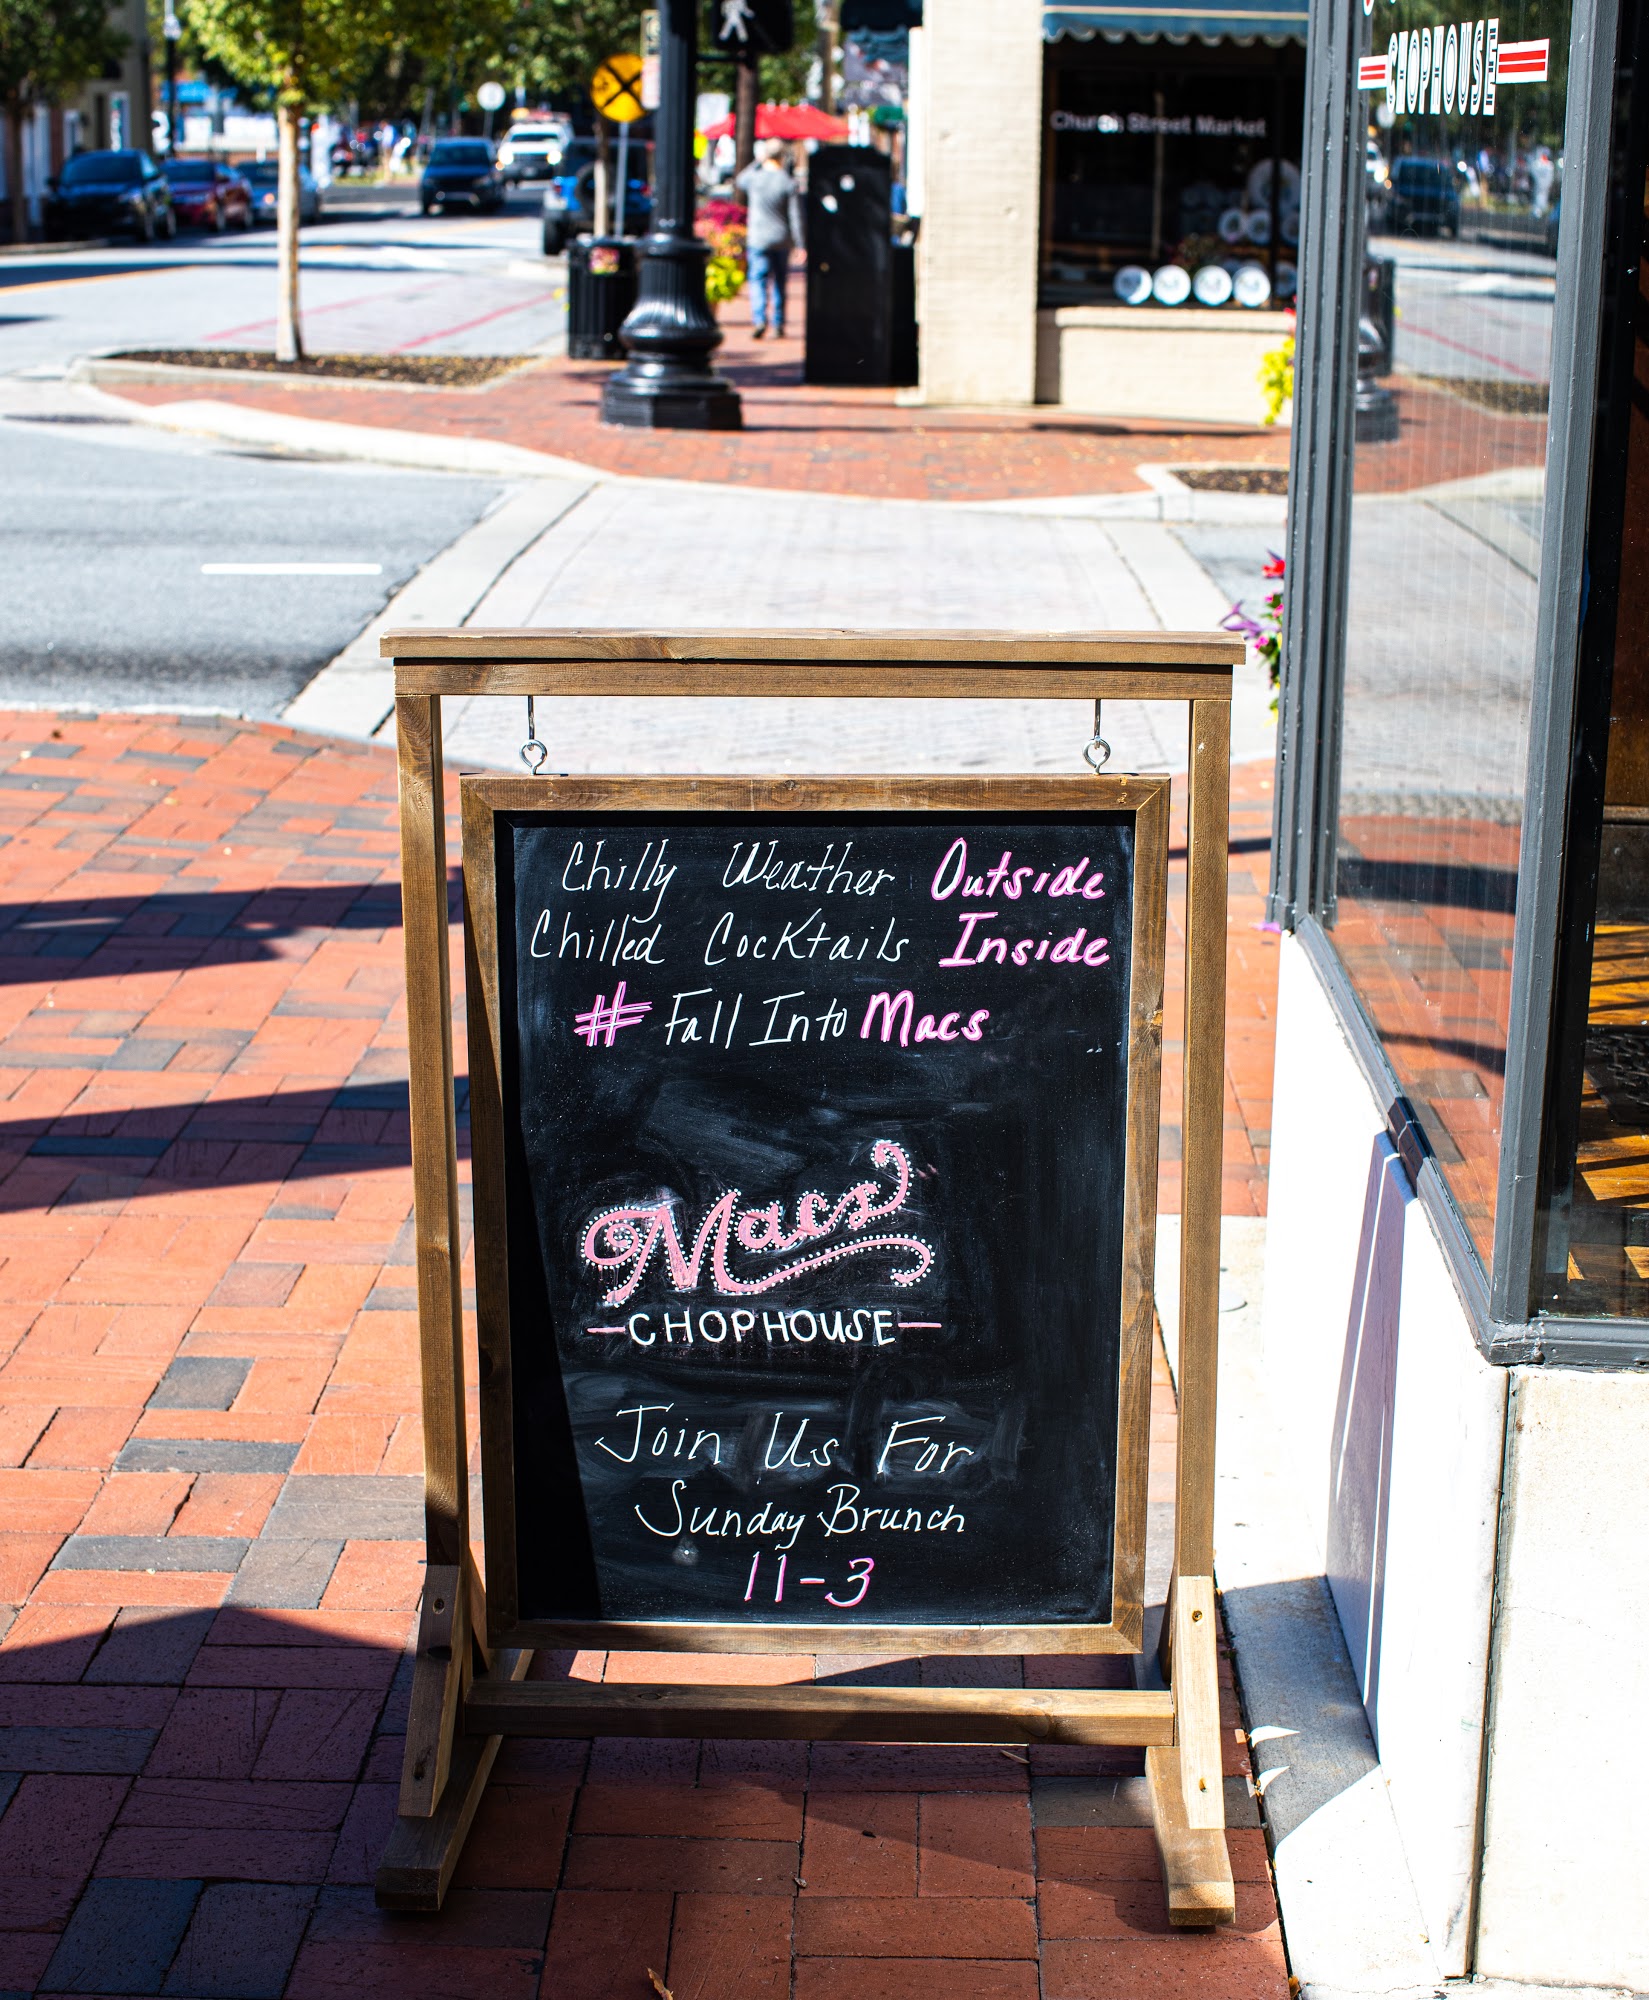 CHOPHOUSE
Church Street Market
Chilly Weather Outside
Chilled Cocktails Inside
# Fall Into Macs
Macs
CHOPHOUSE
Join Us For
Sunday Brunch
11-3